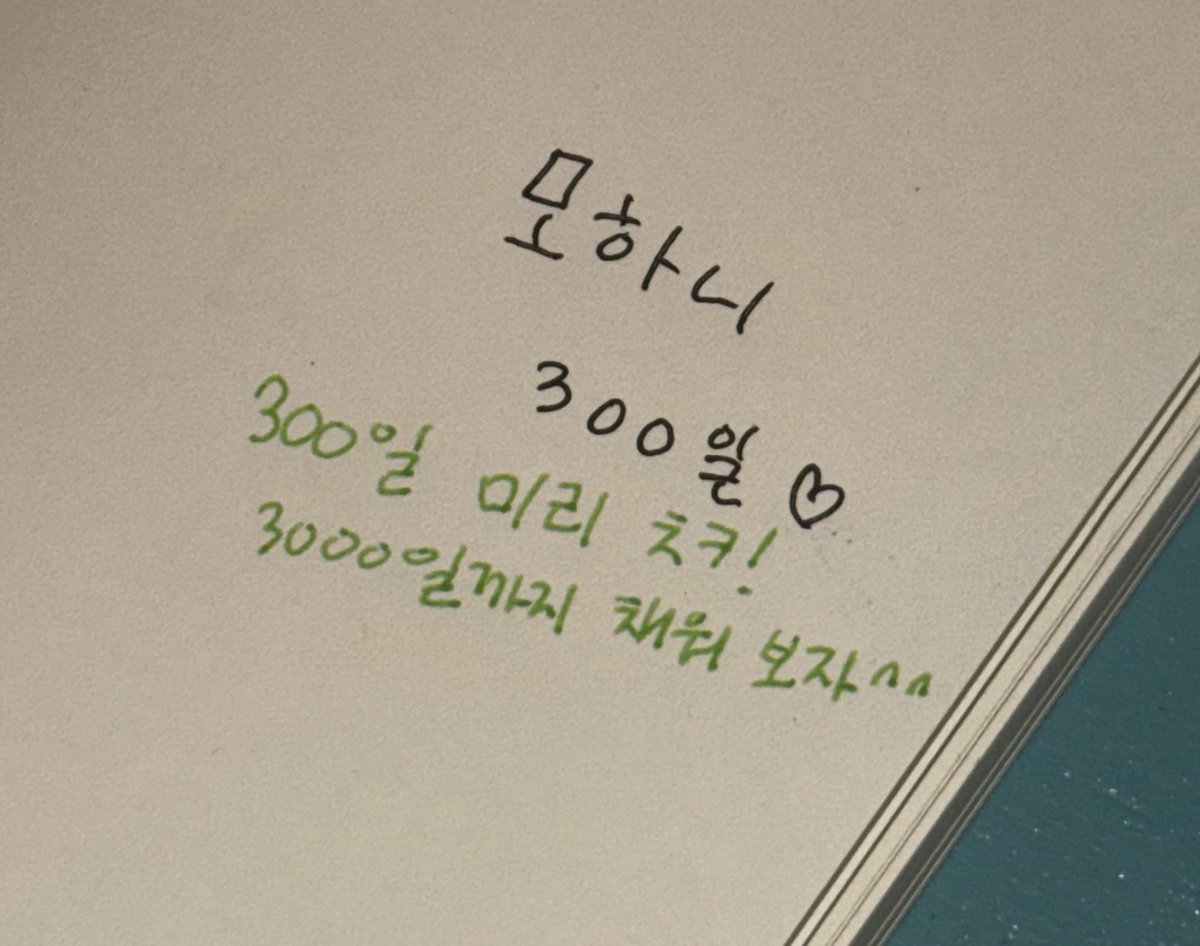 모하니
300일 ♡
300일 미리 츄카!
3000일까지 채워 보자^^